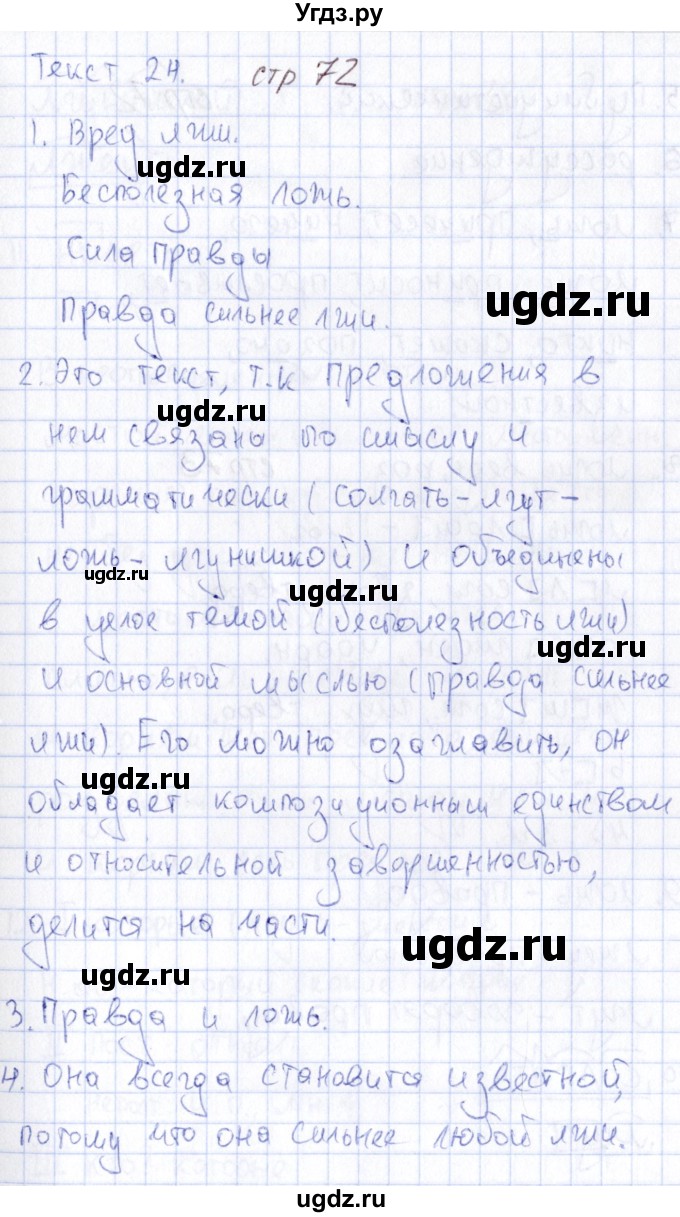 Угдз.ру
Текст 24. стр 72
1. Вред лжи.
Бесполезная ложь.
Сила правды
Правда сильнее лжи.
2. Это текст, т.к предложения в
нем связаны по смыслу и
грамматически (солгать-лгут-
ложь-лгунишкой) и объединены
в целое темой (бесполезность лжи)
и основной мыслью (правда сильнее
лжи). Его можно озаглавить, он
обладает композиционным единством
и относительной завершенностью,
делится на части.
3. Правда и ложь.
4. Она всегда становится известной,
потому что она сильнее любой лжи.
ugdz.ru
ugdz.ru
ugdz.ru
ugdz.ru
ugdz.ru
ugdz.ru
ugdz.ru
ugdz.ru
ugdz.ru
ugdz.ru
ugdz.ru